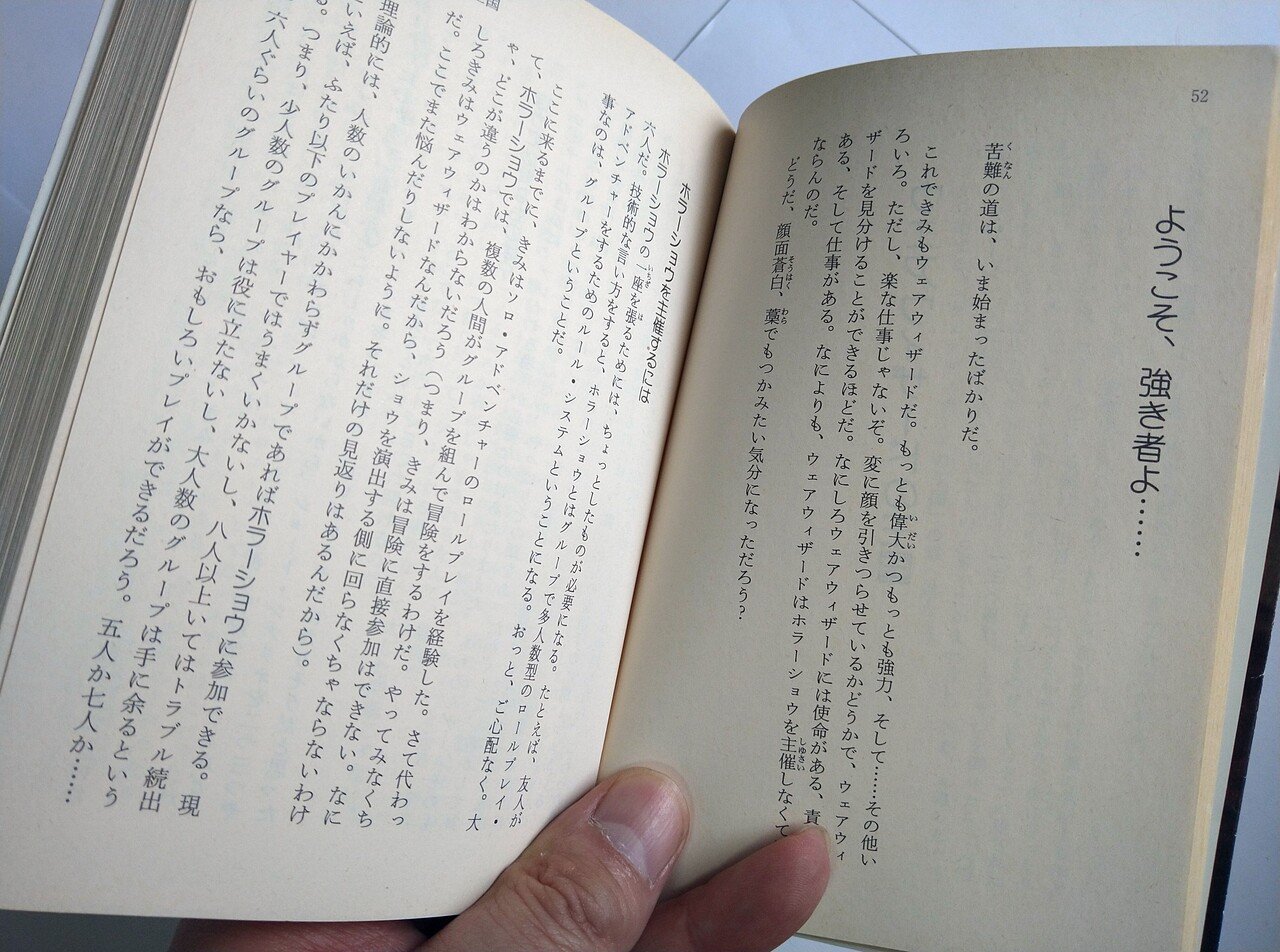 52
ようこそ、強き者よ……
苦難の道は、いま始まったばかりだ。
これできみもウェアウィザードだ。もっとも偉大かつもっとも強力、そして……その他い
ろいろ。ただし、楽な仕事じゃないぞ。変に顔を引きつらせているかどうかで、ウェアウィ
ザードを見分けることができるほどだ。なにしろウェアウィザードには使命がある、責
ある、そして仕事がある。なによりも、ウェアウィザードはホラーショウを主催しなくて
ならんのだ。
どうだ、顔面蒼白、藁でもつかみたい気分になっただろう？
国
ホラーショウを主催するには
ホラーショウの一座を張るためには、ちょっとしたものが必要になる。たとえば、友人が
六人だ。技術的な言い方をすると、ホラーショウとはグループで多人数型のロールプレイ・
アドベンチャーをするためのルール・システムということになる。おっと、ご心配なく。大
事なのは、グループということだ。
ここに来るまでに、きみはソロ・アドベンチャーのロールプレイを経験した。さて代わっ
て、ホラーショウでは、複数の人間がグループを組んで冒険をするわけだ。やってみなくち
ゃ、どこが違うのかはわからないだろう（つまり、きみは冒険に直接参加はできない。なに
しろきみはウェアウィザードなんだから、ショウを演出する側に回らなくちゃならないわけ
だ。ここでまた悩んだりしないように。それだけの見返りはあるんだから）。
理論的には、人数のいかんにかかわらずグループであればホラーショウに参加できる。現
といえば、ふたり以下のプレイヤーではうまくいかないし、八人以上いてはトラブル続出
る。つまり、少人数のグループは役に立たないし、大人数のグループは手に余るという
六人ぐらいのグループなら、おもしろいプレイができるだろう。五人か七人か……